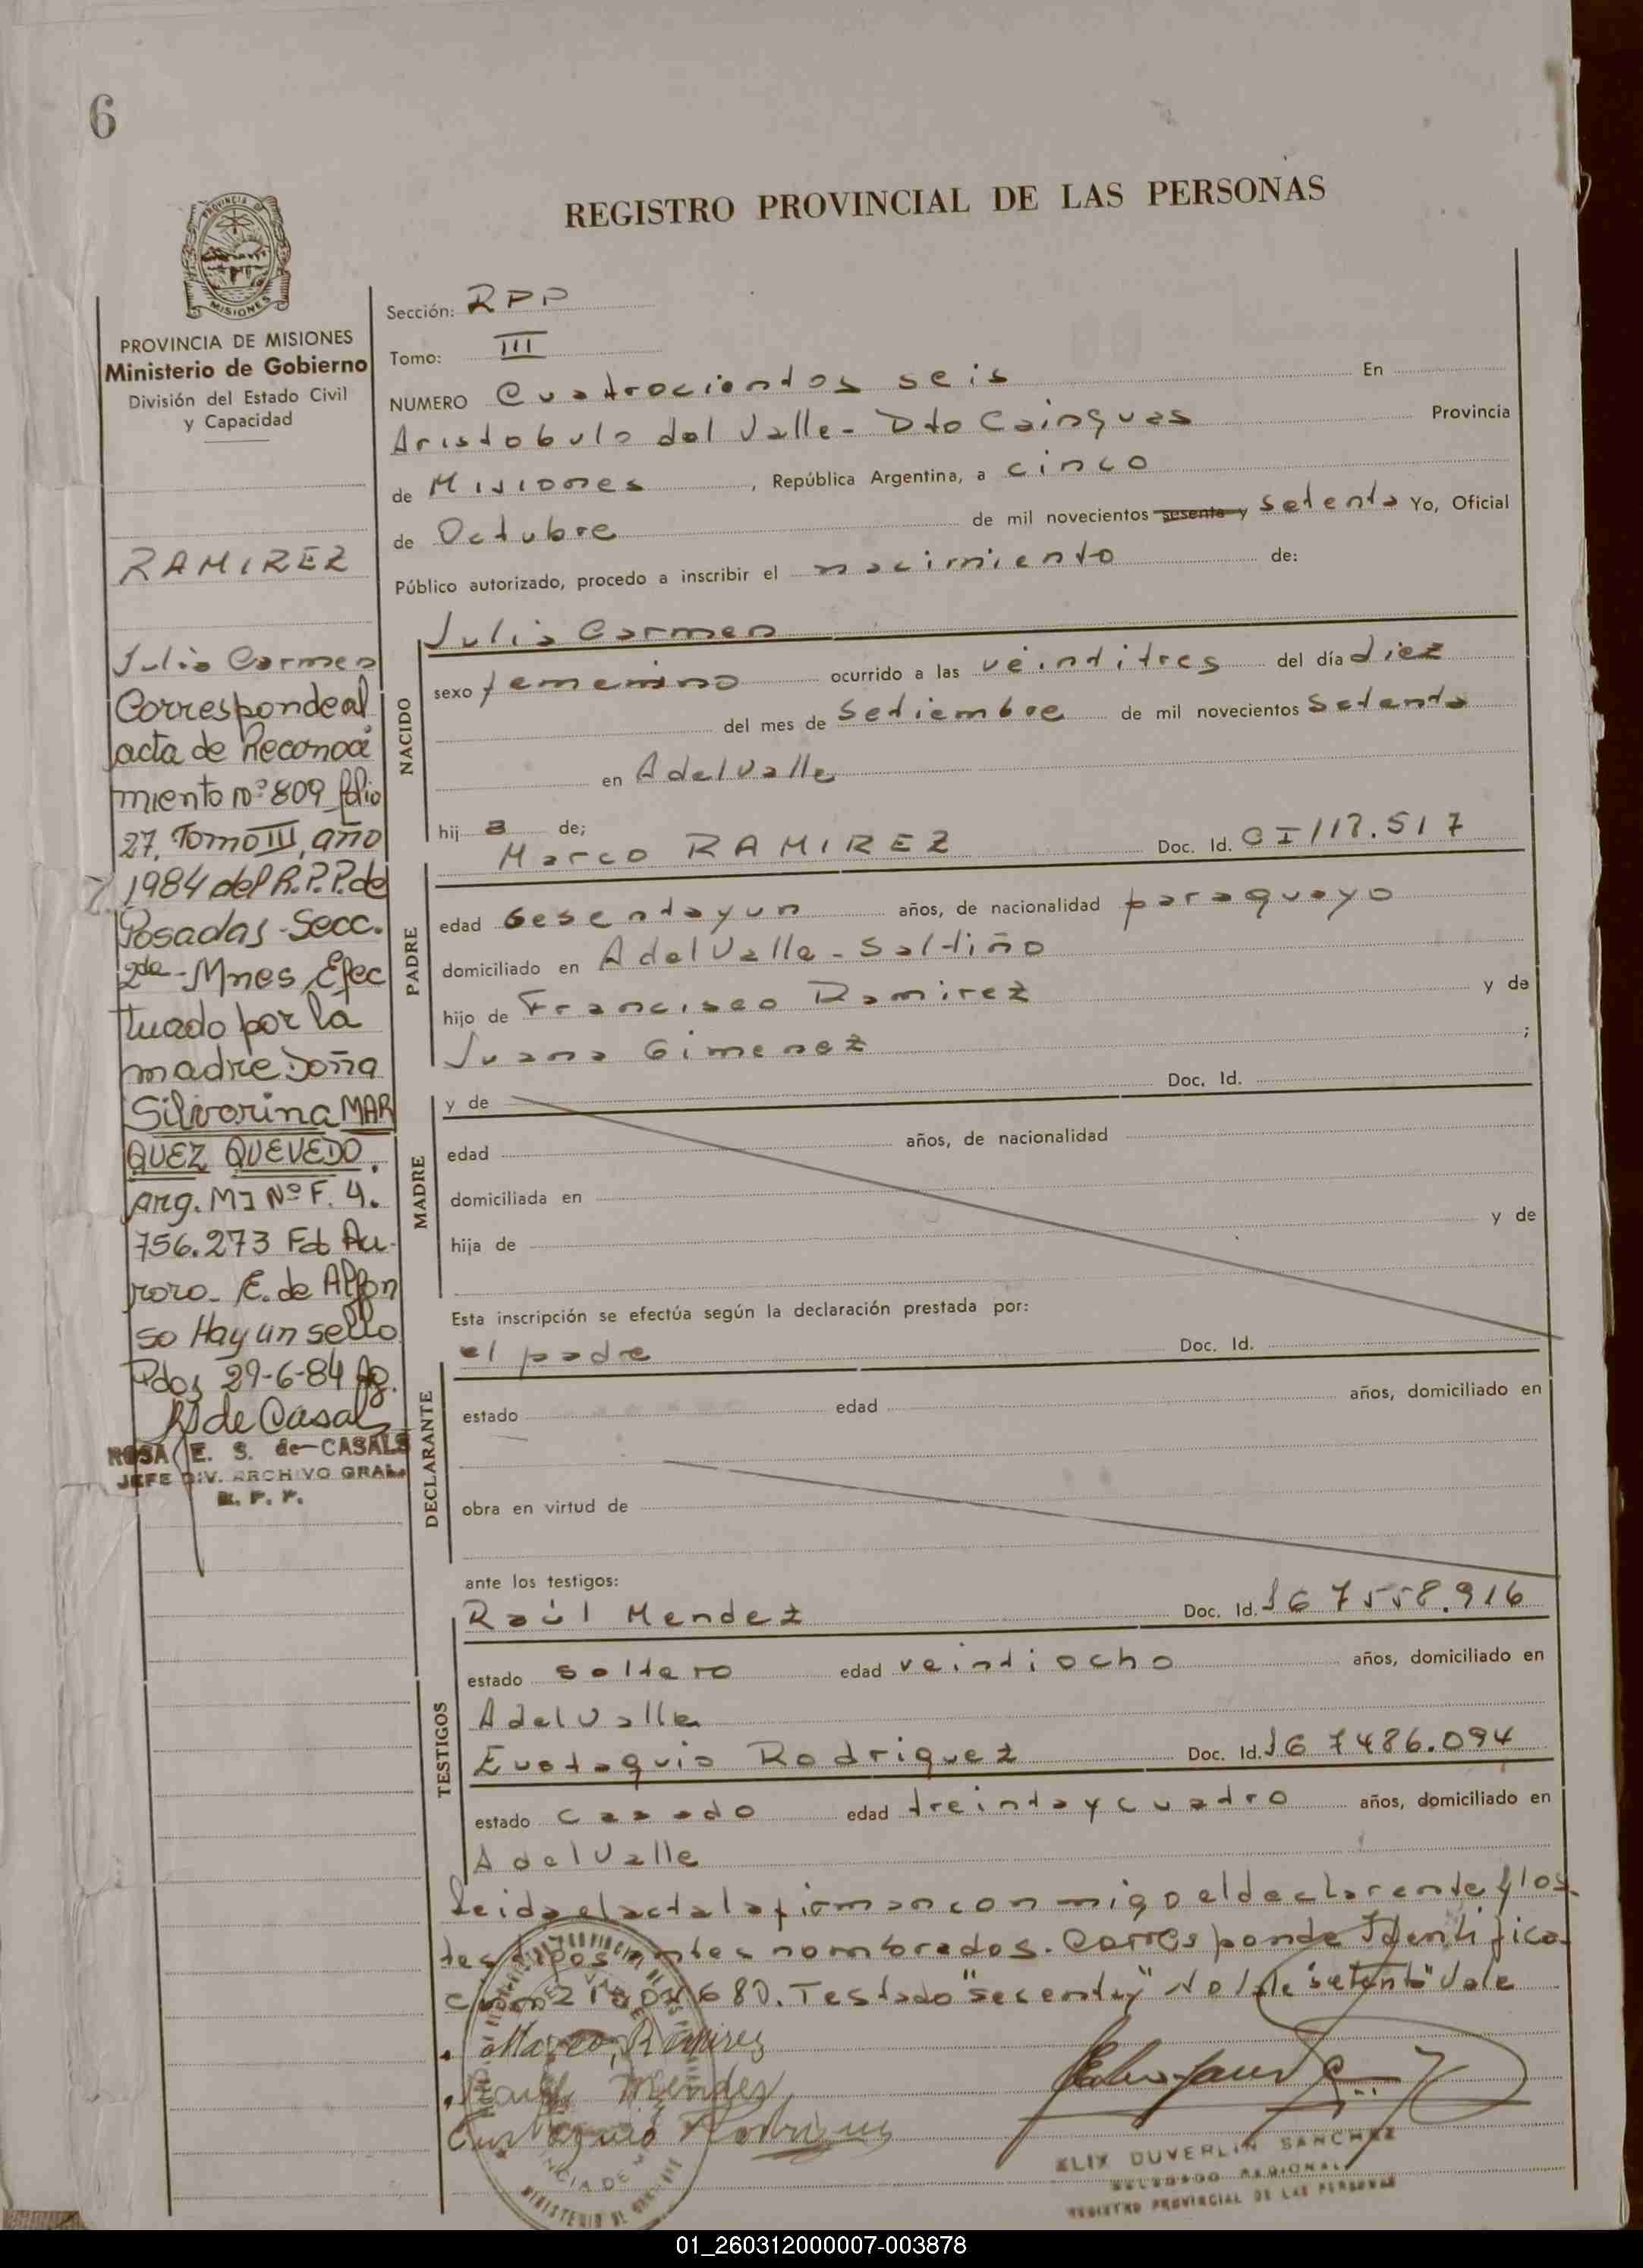 6
REGISTRO PROVINCIAL DE LAS PERSONAS
PROVINCIA DE MISIONES
Ministerio de Gobierno
División del Estado Civil
y Capacidad
RAMIREZ
Julia Carmen
Corresponde al
acta de Reconoci
miento Nº 809 folio
27, Tomo III, año
1984 del R.P.P. de
Posadas - Secc.
2da - Mnes, Efec
tuado por la
madre Doña
Silvorina MAR
QUEZ QUEVEDO.
Arg. MI Nº F. 4.
756.273 Fdo Au-
rora E. de Alfon
so Hay un sello
Pdas 29-6-84
R S de Casals
ROSA E. S. de CASALS
JEFE DIV. ARCHIVO GRAL.
R. P. P.
Sección: RPP
Tomo: III
NUMERO Cuatrocientos seis En
Aristobulo del Valle - Dto Cainguas Provincia
de Misiones, República Argentina, a cinco
de Octubre de mil novecientos sesenta y setenta Yo, Oficial
Público autorizado, procedo a inscribir el nacimiento de:
Julia Carmen
NACIDO
sexo femenino ocurrido a las veintitres del día diez
del mes de Setiembre de mil novecientos Setenta
en AdelValle
hij a de;
Marco RAMIREZ Doc. Id. CI 117.517
PADRE
edad Sesenta y un años, de nacionalidad paraguayo
domiciliado en AdelValle - Saltiño
hijo de Francisco Ramirez y de
Juana Gimenez ;
y de Doc. Id.
MADRE
edad años, de nacionalidad
domiciliada en
hija de y de
Esta inscripción se efectúa según la declaración prestada por:
el padre Doc. Id.
DECLARANTE
estado edad años, domiciliado en
obra en virtud de
ante los testigos:
Raúl Mendez Doc. Id. 7558.916
TESTIGOS
estado soltero edad veintiocho años, domiciliado en
AdelValle
Eustaquio Rodriguez Doc. Id. 7486.094
estado casado edad treinta y cuatro años, domiciliado en
AdelValle
Leida el acta la firman conmigo el declarante y los
testigos antes nombrados. Corresponde Identifica
cion 680. Testado "sesenta y" No Vale "setenta" Vale
Marco Ramirez
Raul Mendez
Eustaquio Rodriguez
ELIX DUVERLIN SANCHEZ
DELEGADO REGIONAL
REGISTRO PROVINCIAL DE LAS PERSONAS
01_260312000007-003878